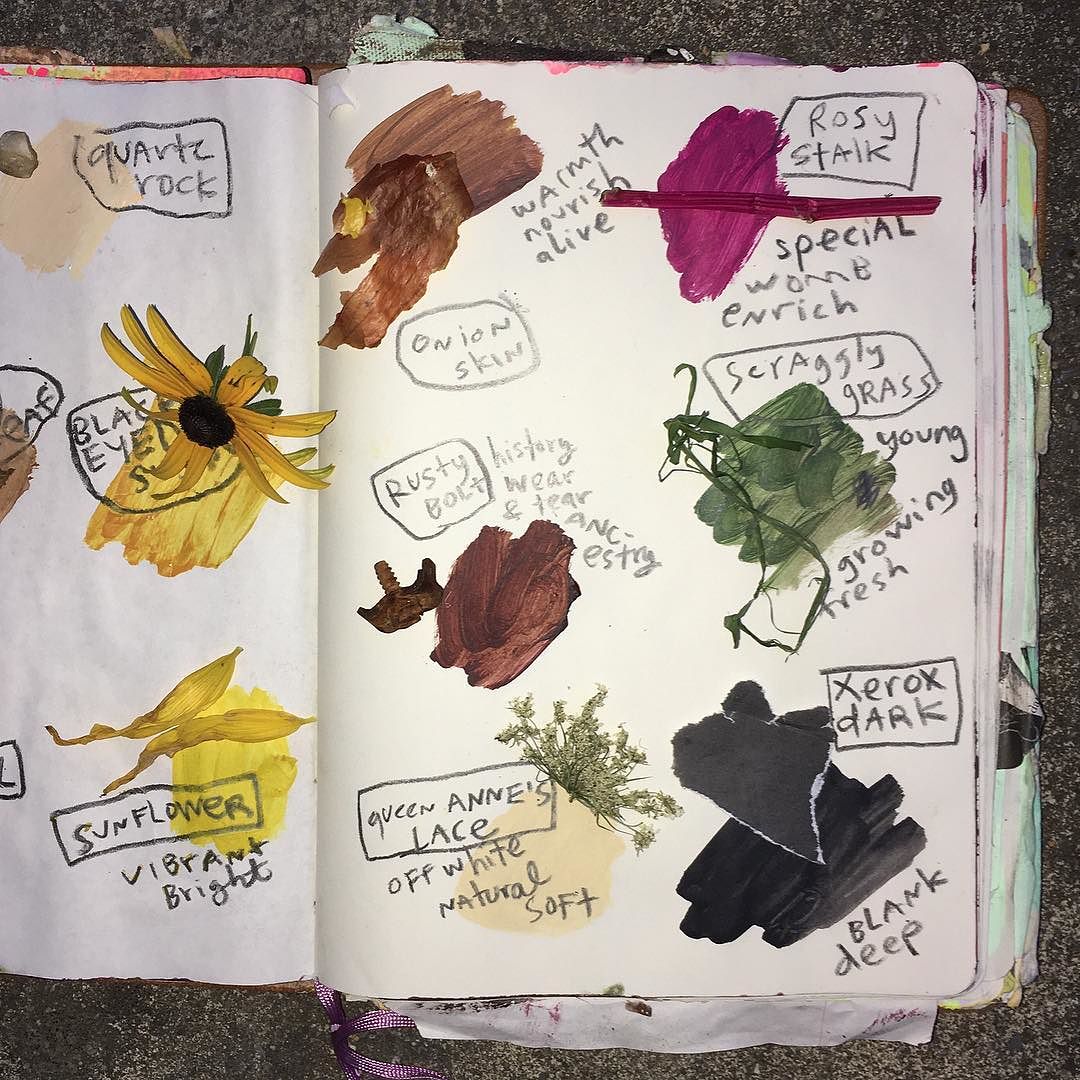 quartz
rock
BLACK
EYED
S
SUNFLOWER
VIBRANT
Bright
warmth
nourish
alive
ONION
SKIN
Rosy
stalk
special
womb
enrich
scraggly
grass
young
growing
fresh
Rusty
Bolt
history
wear
& tear
ANC-
estry
queen ANNE'S
LACE
OFF white
Natural
SOFT
Xerox
dARK
BLANK
deep